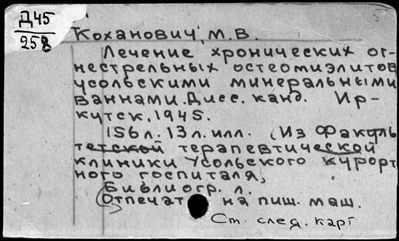 Д45
258
Коханович, М.В.
Лечение хронических ог-
нестрельных остеомиэлитов
усольскими минеральными
ваннами. Дисс. канд. Ир-
кутск, 1945.
156л. 13л.илл. (Из Факуль
тетской терапевтической
клиники Усольского курорт
ного госпиталя,
Библиогр. л.
Отпечат на пиш. маш.
Ст. след. карт